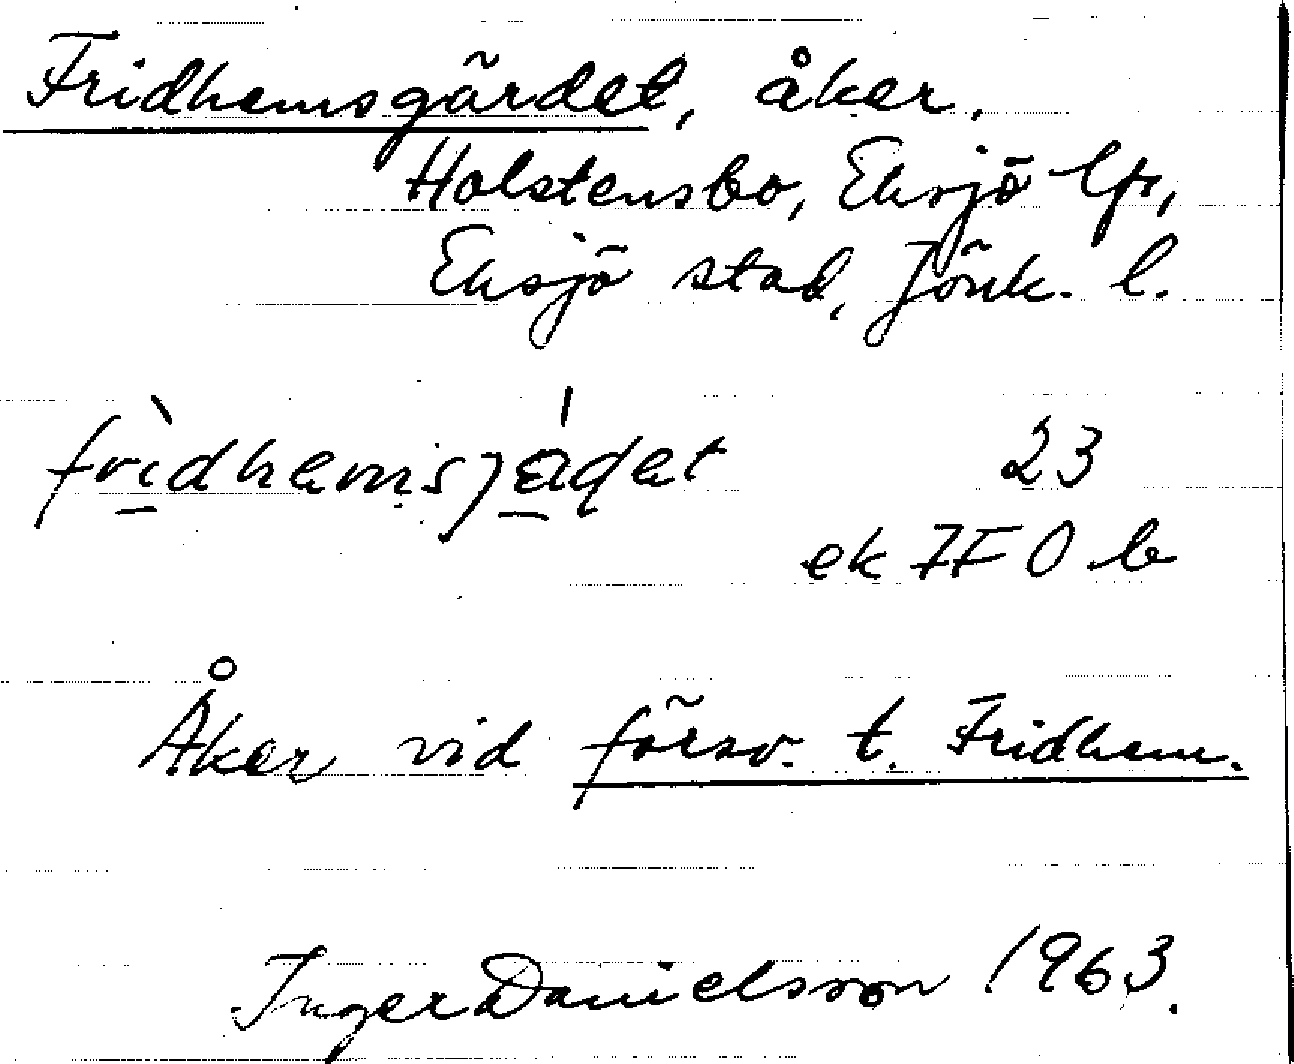 Fridhemsgärdet, åker.
Holstensbo, Eksjö lfs,
Eksjö stad, Jönk. l.
23
ek 7F 0 b
Åker vid försv. t. Fridhem.
Inger Danielsson 1963.